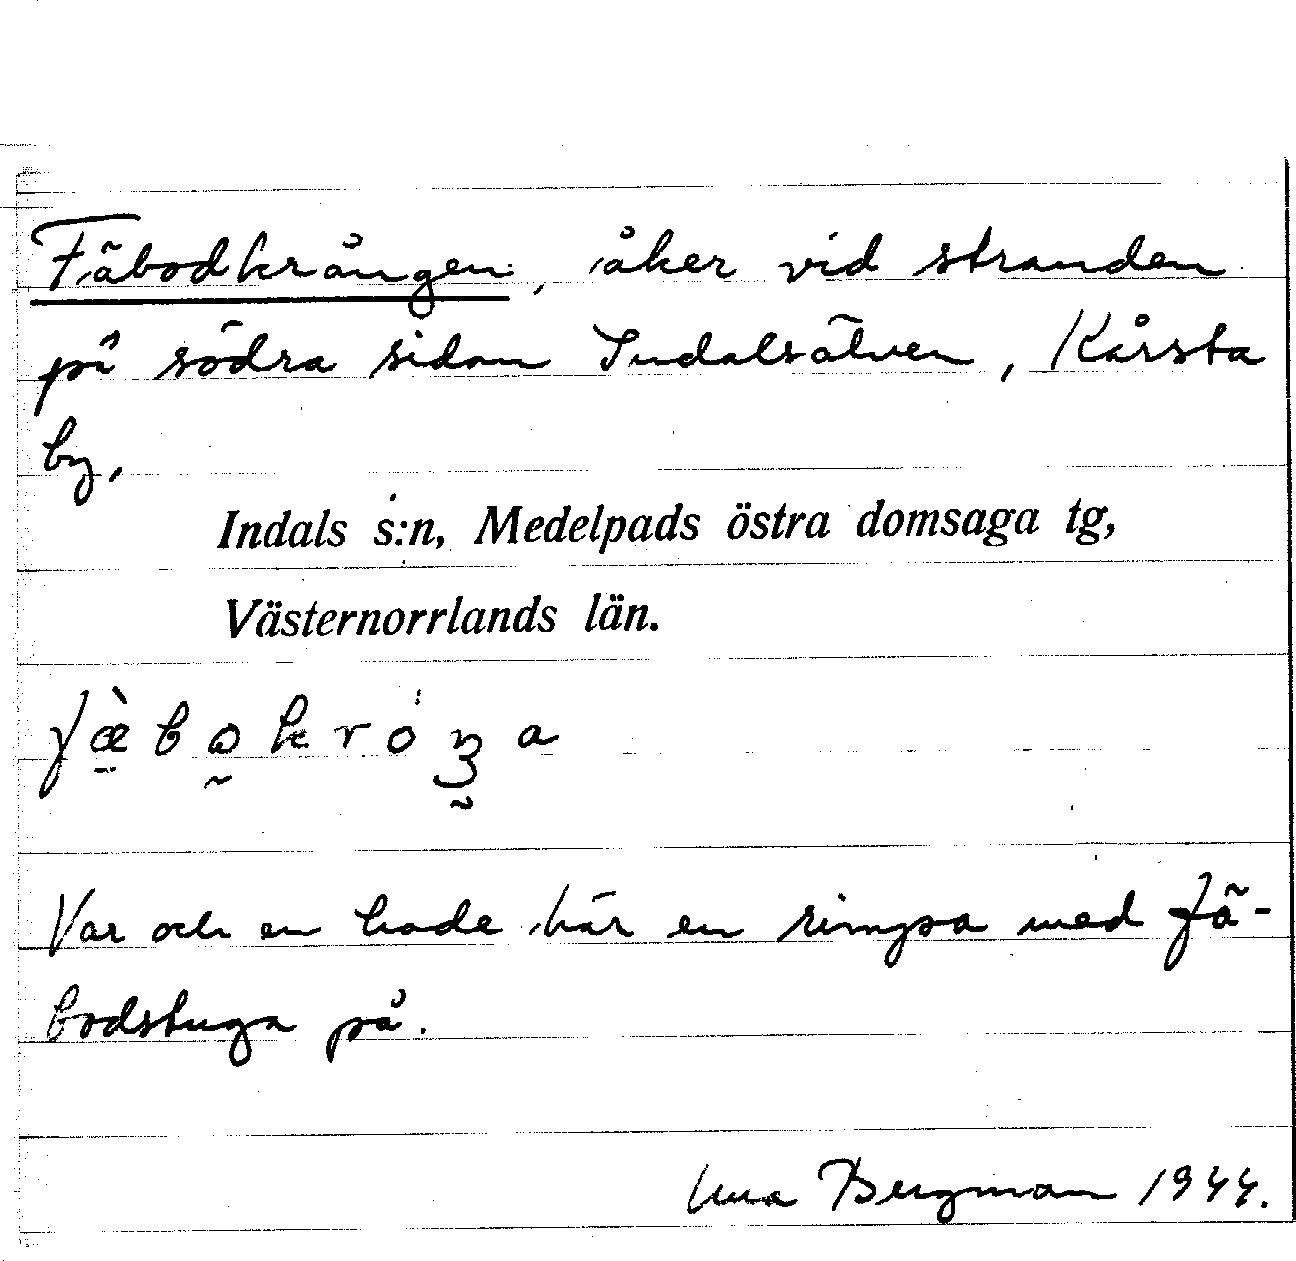 Fäbodkrången, åker vid stranden
på södra sidan Indalsälven, Kårsta
by,
Indals s:n, Medelpads östra domsaga tg,
Västernorrlands län.
Var och en hade här en rimpa med fä-
bodstuga på.
Bergman 1944.